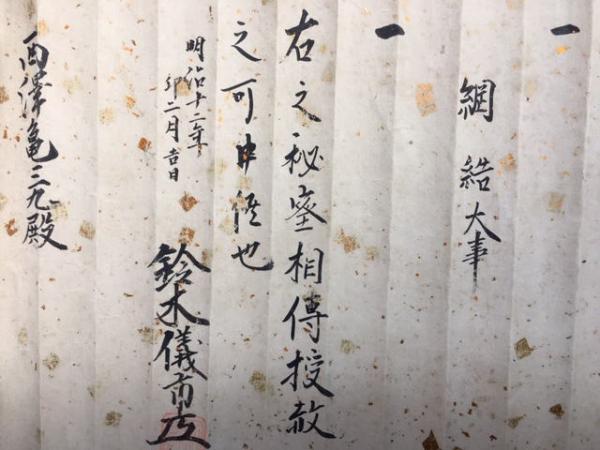 一
網結大事
一
右之秘密相傳授赦
之可申候也
明治十二年
卯二月吉日
鈴木儀
西澤亀三九殿